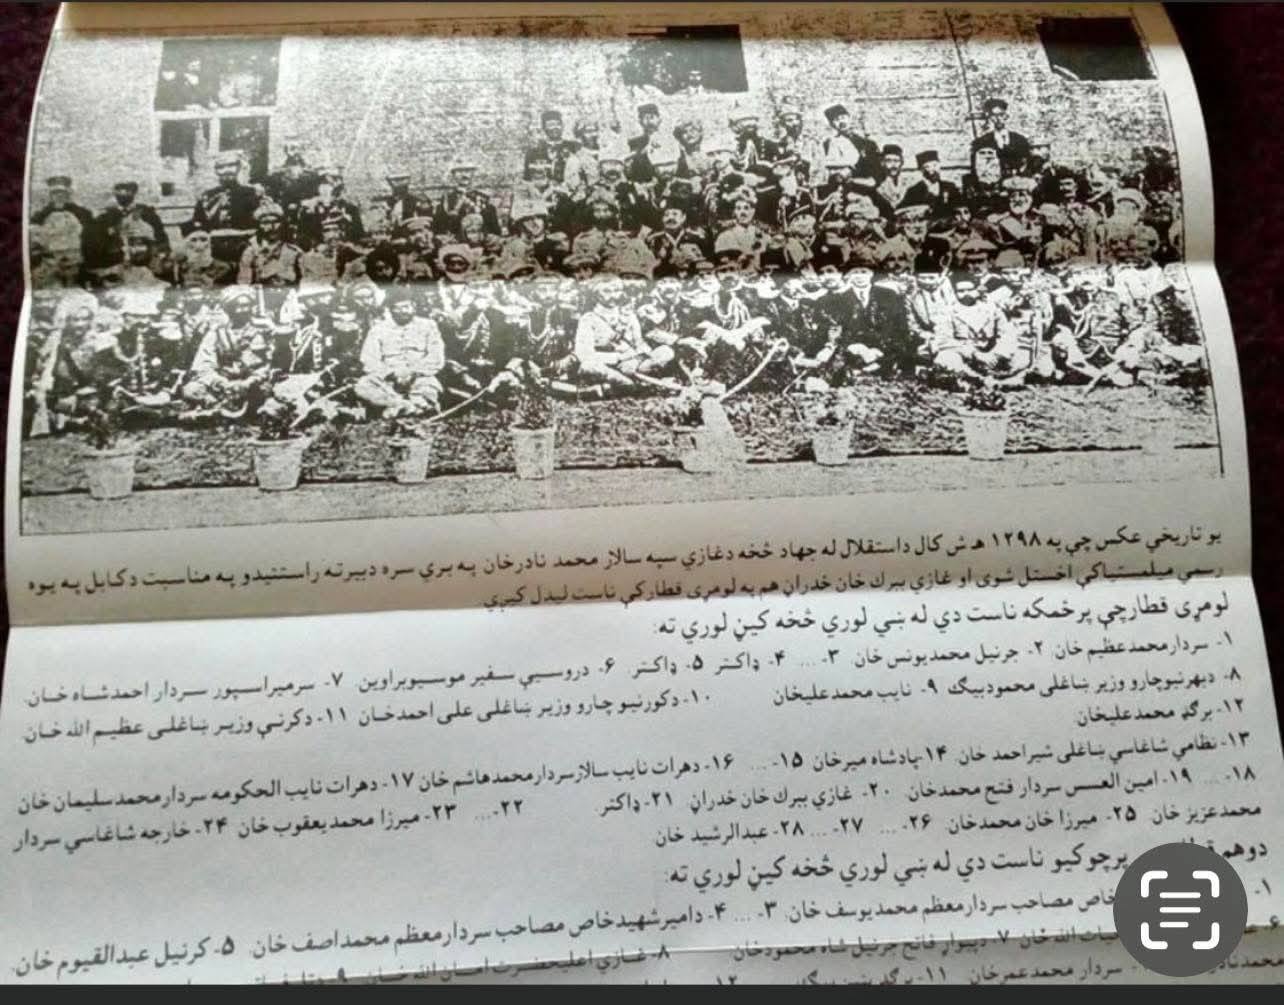 یو تاریخي عکس چي په ۱۲۹۸ هـ ش کال داستقلال له جهاد څخه دغازي سپه سالار محمد نادرخان په بري سره دبیرته راستنیدو په مناسبت دکابل په یوه
رسمي میلمستیاکي اخستل شوی او غازي ببرك خان ځدراڼ هم په لومړی قطارکي ناست لیدل کیږي.
لومړی قطارچي پرځمکه ناست دي له ښي لوري څخه کیڼ لوري ته:
۱- سردارمحمدعظیم خان ۲- جرنیل محمدیونس خان ۳- ... ۴- ډاکتر ۵- ډاکتر ۶- دروسیې سفیر موسیوبراوین ۷- سرمیراسپور سردار احمدشاه خان
۸- دبهرنیوچارو وزیر ښاغلی محمودبیګ ۹- نایب محمدعلیخان ۱۰- دکورنیو چارو وزیر ښاغلی علی احمدخان ۱۱- دکرنې وزیر ښاغلی عظیم الله خان
۱۲- برګد محمدعلیخان
۱۳- نظامي شاغاسي ښاغلی شیراحمد خان ۱۴- پادشاه میرخان ۱۵- ... ۱۶- دهرات نایب سالارسردارمحمدهاشم خان ۱۷- دهرات نایب الحکومه سردارمحمدسلیمان خان
۱۸- ... ۱۹- امین العسس سردار فتح محمدخان ۲۰- غازي ببرك خان ځدراڼ ۲۱- ډاکتر ۲۲- ... ۲۳- میرزا محمدیعقوب خان ۲۴- خارجه شاغاسي سردار
محمدعزیز خان ۲۵- میرزا خان محمدخان ۲۶- ... ۲۷- ... ۲۸- عبدالرشید خان
دوهم پرچوکیو ناست دي له ښي لوري څخه کیڼ لوري ته:
۱- خاص مصاحب سردارمعظم محمدیوسف خان ۳- ... ۴- دامیرشهیدخاص مصاحب سردارمعظم محمداصف خان ۵- کرنیل عبدالقیوم خان
۶- حیات الله خان ۷- دټیوار فاتح جرنیل شاه محمودخان ۸- غازي اعلیحضرت امان الله خان ۹-
سردار محمدعمرخان ۱۱- برګد ۱۲-